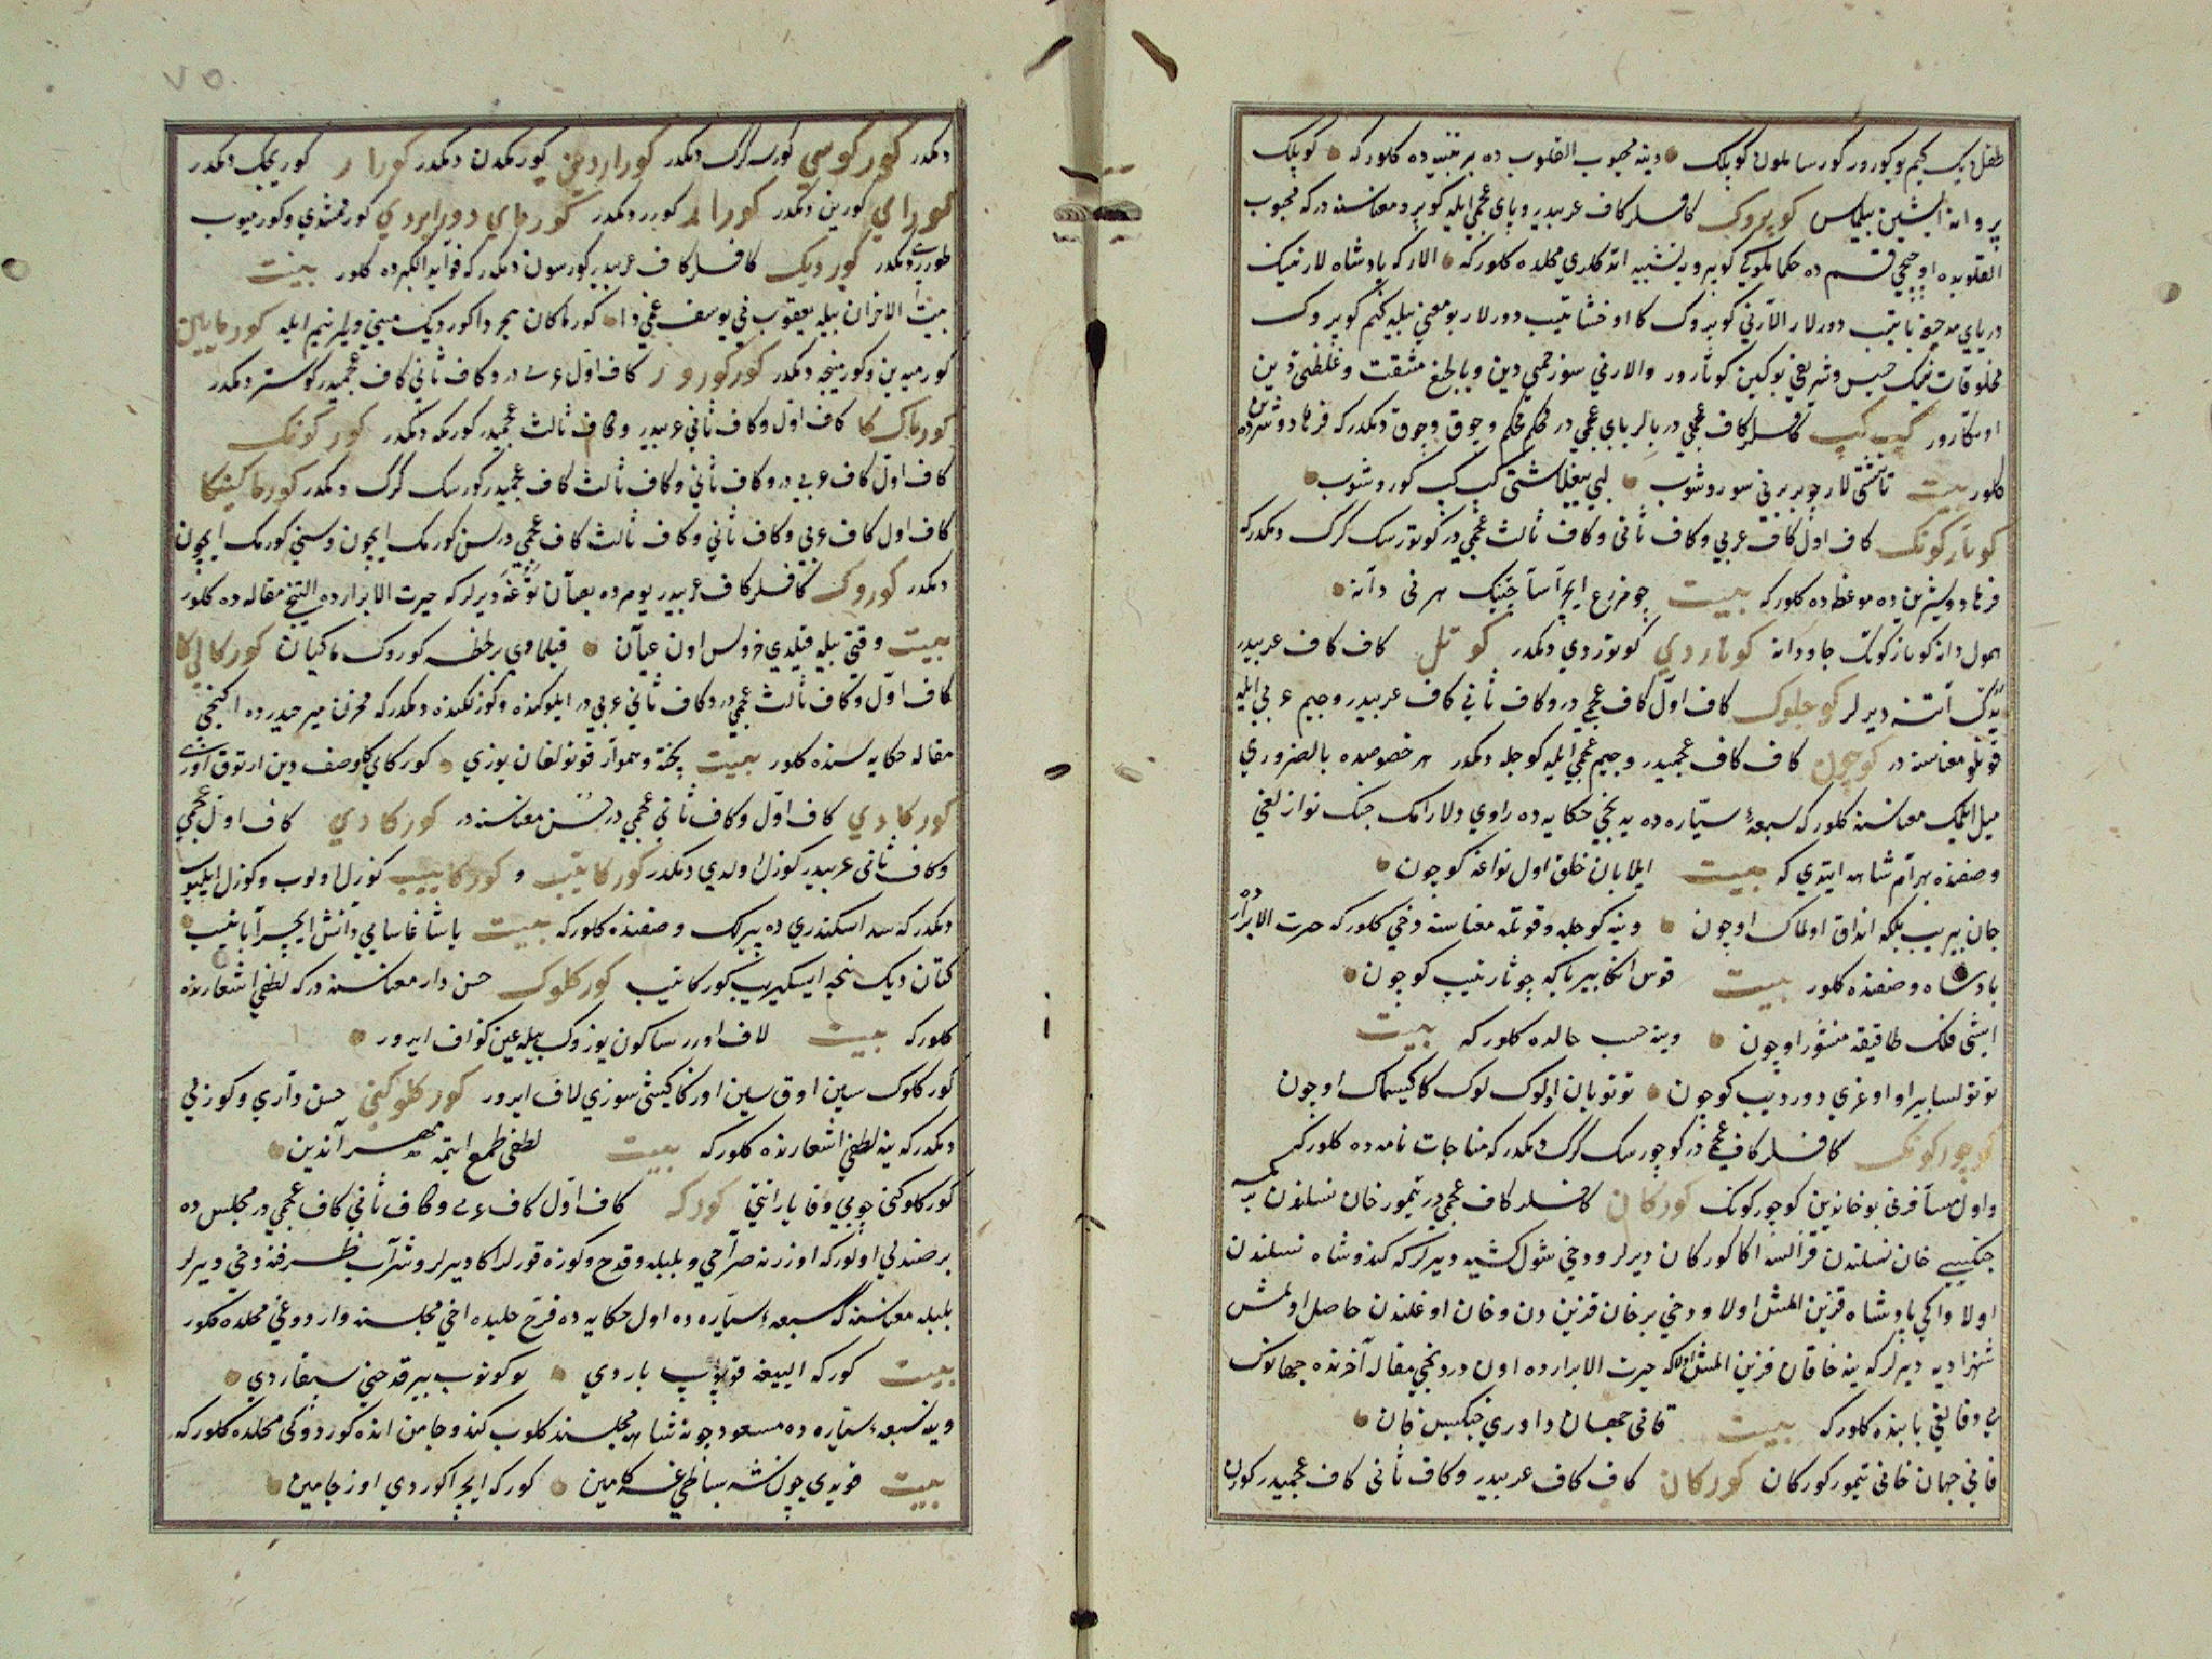 طفل دیک کیم یوکورور کورسا یلون کوپلک وینه محبوب القلوب ده بر تنبیه ده کلورکه کوپلک
پروانه ایشین بیلماس کوپروک کافلر کاف عربیدر و بای عجمی ایله کوپرو معناسنه درکه محبوب
القلوبده اوچنجی قسم ده حکما کوپرویه تشبیه اتدکلری محلده کلورکه الارکه پادشاه لارنینک
دریای یاتیب دورلار الارنی کوپروک کا اوخشاتیب دورلار بو معنی بیله کیم کوپروک
مخلوقات نینک خسیس و شریفی یوکین کوتارور والارنی سو زحمتی دین و یا بالچیغ مشقت و غلظتی دین
اوتکارور کپ کپ کافلر کاف عجمی در بالر بای عجمی در محکم محکم و چوق چوق دیمکدرکه فرهاد و شیرین ده
کلور بیت تاشتی لار بربرنی سوروشوب لبی یغلاشتی کپ کپ کوروشوب
کوتارکونک کاف اول کاف عربی و کاف ثانی و کاف ثالث عجمی در کوتورسک کرک دیمکدرکه
فرهاد و شیرین ده موعظه ده کلورکه بیت جو مزرع ایچرا سا چتینک هر نی دانه
همول دانه کوتارکونک جاودانه کوتاردی کوتوردی دیمکدر کوتل کاف کاف عربیدر
یدک آتنه دیرلر کوجلوک کاف اول کاف عجمی در و کاف ثانی کاف عربیدر و جیم عربی ایله
قوتلو معناسنه در کوچون کاف کاف عجمیدر و جیم عجمی ایله کوجله دیمکدر هر خصوصده بالضروری
میل ایلمک معناسنه کلورکه سبعهٔ سیاره ده یدنجی حکایه ده راوی دلارامک چنک نوازلغی
وصفنده بهرام شاهه ایتدی که بیت ایلابان خلق اول نواغه کوچون
جان بیریب بلکه انداق اولماک اوچون وینه کوجله و قوتله معناسنه دخی کلورکه حیرت الابرار ده
پادشاه وصفنده کلور بیت قوس انکا بیرتاکیه چوتارتیب کوچون
ایشی فلک طاقیغه منشور اوچون وینه حسب حالده کلورکه بیت
توتولسا بیراو اوغری دوردیب کوچون توتوبان ایلوک لوک کا کیسماک اوچون
کوچورکونک کافلر کاف عجمی در کوچورسک کرک دیمکدرکه مناجات نامه ده کلورکه
و اول مسافرنی بو خانه دین کوچورکونک کورکان کافلر کاف عجمی در تیمور خان نسلندن یه
جنکیز خان نسلندن قز السه اکا کورکان دیرلر و دخی شول کشیه دیرلرکه کندو شاه نسلندن
اولا و اکی پادشاه قزین المش اولا و دخی بر خان قزین دن و خان اوغلندن حاصل اولمش
شهزادیه دیرلرکه ینه خاقان قزین المش اولاکه حیرت الابرار ده اون دردنجی مقاله آخرنده جهانوک
بی وفالیغی بابنده کلورکه بیت قانی جهان داوری جنکیز خان
قانی جهان خانی تیمور کورکان کورکان کاف کاف عربیدر و کاف ثانی کاف عجمیدر کورن
٧٥
دیمکدر کورکوسی کورسه کرک دیمکدر کوراردین کورمکدن دیمکدر کورار کوریجک دیمکدر
کورای کورین دیمکدر کورار کورر دیمکدر کورمای دورایردی کورمشدی و کورمیوب
طورردی دیمکدر کوردیک کافلر کاف عربیدر کورسون دیمکدرکه فواید الکبرده کلور بیت
بیت الاحزان بیله یعقوب نی یوسف غمی دا کورماکان هجر دا کوردیک مینی و لیریم ایله کورمایین
کورمیدین و کورمینجه دیمکدر کورکوزور کاف اول عربی در و کاف ثانی کاف عجمیدر کوستر دیمکدر
کورماک کا کاف اول و کاف ثانی عربیدر و کاف ثالث عجمیدر کورمکه دیمکدر کورکونک
کاف اول کاف عربی در و کاف ثانی و کاف ثالث کاف عجمیدر کورسک کرک دیمکدر کورماکینکا
کاف اول کاف عربی و کاف ثانی و کاف ثالث کاف عجمی در سن کورمک ایچون و سنی کورمک ایچون
دیمکدر کوروک کافلر کاف عربیدر یومرده یعنی توغه دیرلرکه حیرت الابرار ده التنجی مقاله ده کلور
بیت وقتی بیله قیلدی خروس اون عیان قیلمادی بر لحظه کوروک ماکیان کورکالی کا
کاف اول و کاف ثالث عجمی در و کاف ثانی عربی در ایلوکنده و کوزلکنده دیمکدرکه مخزن میر حیدرده اکینجی
مقاله حکایه سنده کلور بیت پخته و هموار قوتولغان یوزی کورکالی کا وصف دین ارتوق اوزی
کورکادی کاف اول و کاف ثانی عجمی در حسن معناسنه در کورکادی کاف اول عجمی
و کاف ثانی عربیدر کوزل اولدی دیمکدر کورکاتیب و کورکاییب کوزل اولوب و کوزل ایلیوب
دیمکدرکه سد اسکندری ده پیرلک وصفنده کلورکه بیت یاشاغاسابی دانش ایچرا باتیب
کتان دیک نیچه ایسکیریب کورکاتیب کورکلوک حسن دار معناسنه درکه لطفی اشعارنده
کلورکه بیت لاف اورر ساکون یوزوک بیله عین کزاف ایرور
کورکلوک سین اوق سین اورکا کیشی سوزی لاف ایرور کورکلوکنی حسن داری و کوزلی
دیمکدرکه ینه لطفی اشعارنده کلورکه بیت لطفی طمع ایتمه مهر آندین
کورکلوکنی چوبی وفا یاراتتی کورکه کاف اول کاف عربی و کاف ثانی کاف عجمی در مجلس ده
بر صندلی اولورکه اوزرنه صراحی و بلبله و قدح و کوزه قورلر اکا دیرلر و شراب ظرفنه دخی دیرلر
بلبله معناسنه که سبعهٔ سیاره ده اول حکایه ده فرخ حلبده اخی مجلسنه واردوغی محلده کلور
بیت کورکه ایلیغه قویوب باردی بوکونوب بیر قدحنی سیغاردی
وینه سبعهٔ سیاره ده مسعود جونه شاه مجلسنه کلوب کندو جامن اندە کوردوکی محلده کلورکه
بیت قویدی چون شه بساطی غه کامین کورکه ایچرا کوردی اوز جامین